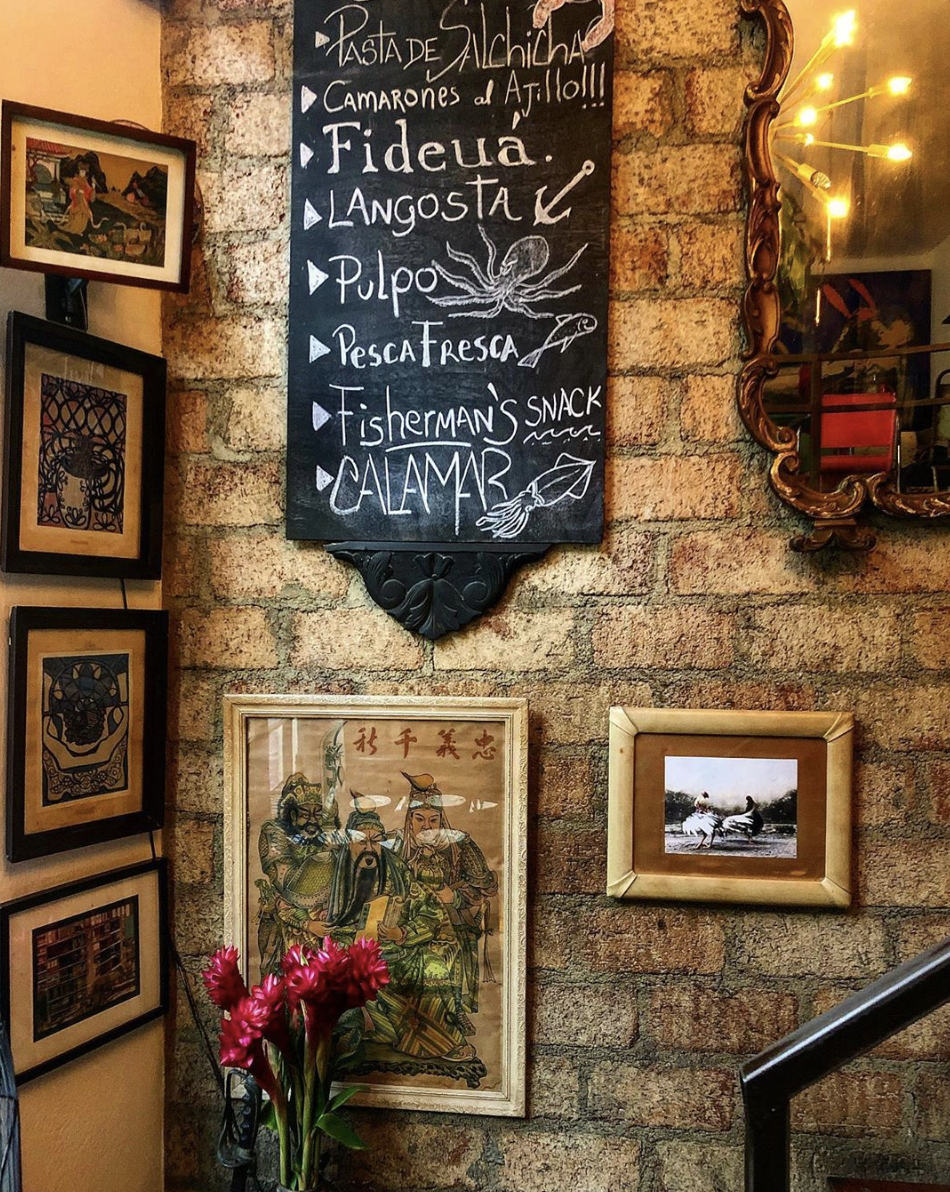 PASTA DE SALCHICHA
CAMARONES al AJILLO!!!
Fideuá.
LANGOSTA
Pulpo
PESCA FRESCA
Fisherman'S SNACK
CALAMAR
秋千義忠